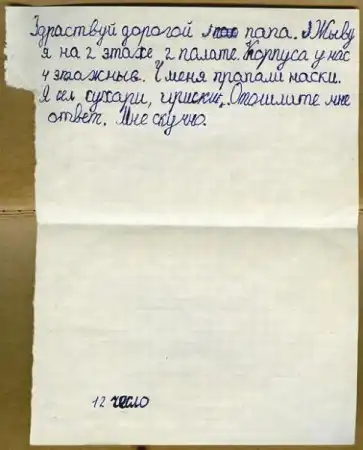 Здраствуй дорогой папа. Я Жыву
я на 2 этаже 2 палате. Корпуса у нас
4 этажные. У меня пропали наски.
Я ел сухари, ириски. Отошлите мне
ответ. Мне скучно.
12 число